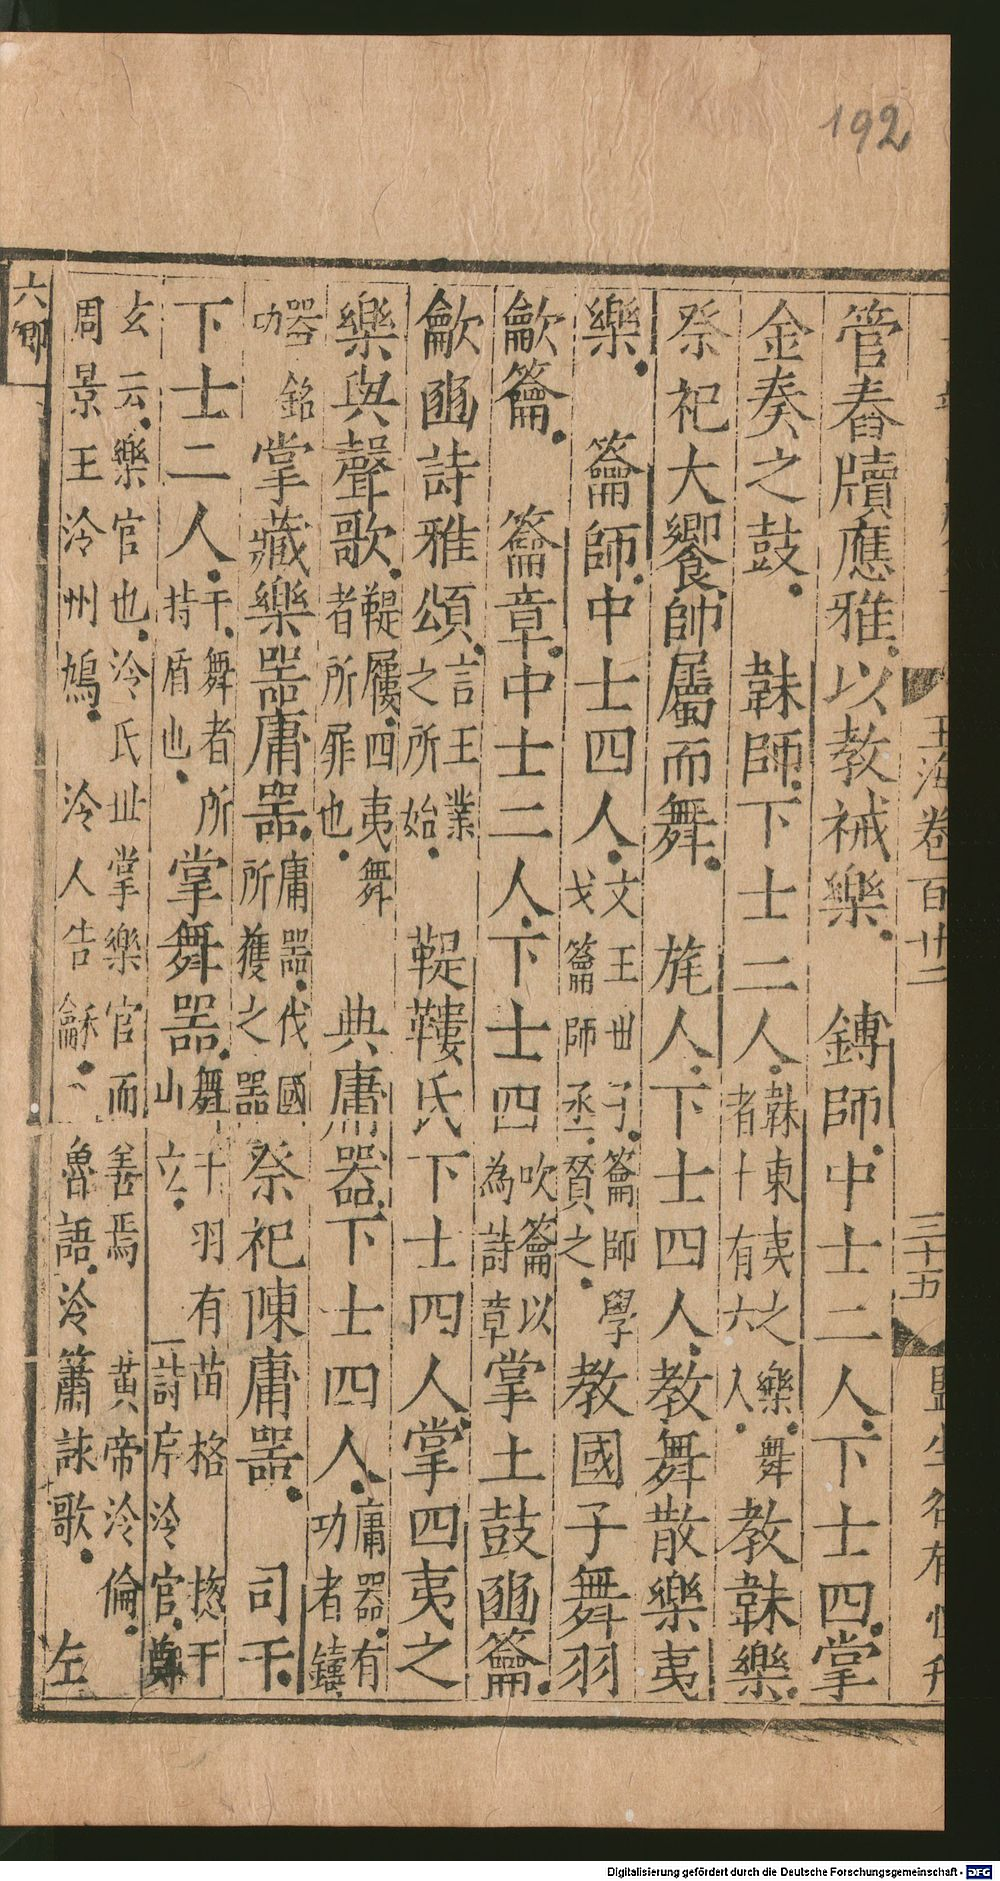 192
玉海卷百廿二
三十五
監生
管舂牘應雅以教祴樂　鎛師中士二人下士四掌
金奏之鼓　韎師下士二人韎東夷之樂舞者十有六人教韎樂
祭祀大饗帥屬而舞　旄人下士四人教舞散樂夷
樂　籥師中士四人文王世子籥師學戈籥師丞贊之教國子舞羽
龡籥　籥章中士二人下士四吹籥以為詩章掌土鼓豳籥
龡豳詩雅頌言王業之所始　鞮鞻氏下士四人掌四夷之
樂與聲歌鞮屨四夷舞者所屝也　典庸器下士四人庸器有功者鑄
器銘功掌藏樂器庸器庸器伐國所獲之器祭祀陳庸器　司干
下士二人干舞者所持盾也掌舞器舞干羽有苗格揔干山立　詩序泠官鄭
玄云樂官也泠氏世掌樂官而善焉　黃帝泠倫　左
周景王泠州鳩　泠人告龢　魯語泠簫詠歌
六卿
Digitalisierung gefördert durch die Deutsche Forschungsgemeinschaft - DFG